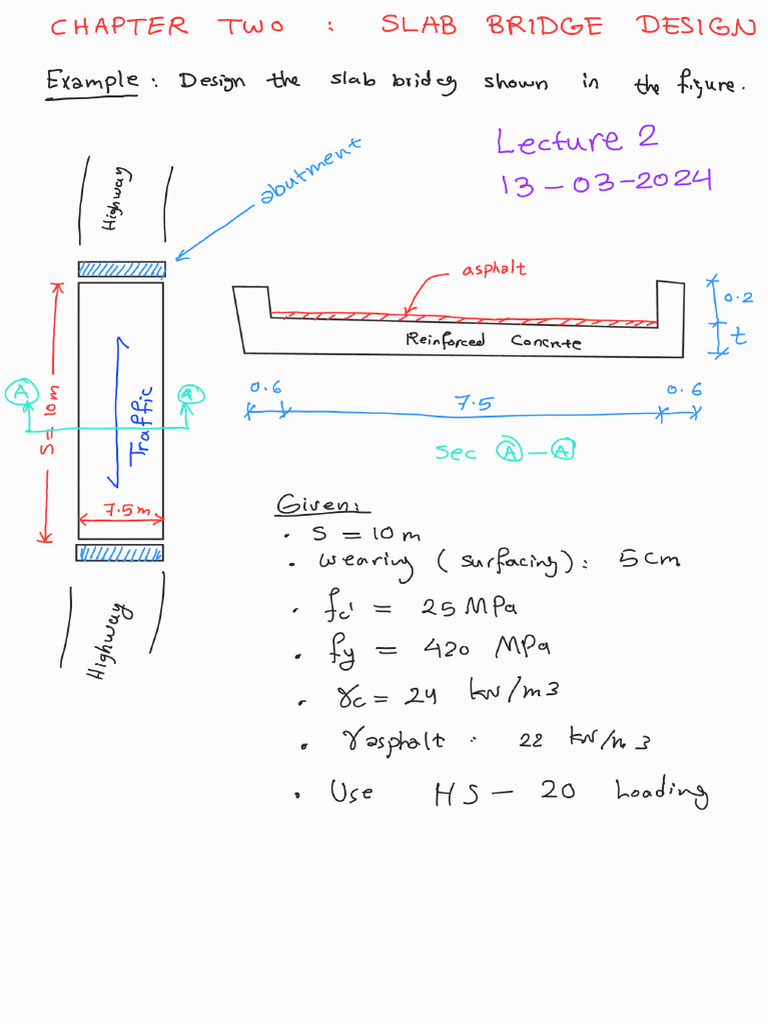 CHAPTER TWO : SLAB BRIDGE DESIGN
Example : Design the slab bridg shown in the figure.
Lecture 2
13-03-2024
Highway
abutment
asphalt
Reinforced Concrete
0.2
t
0.6
7.5
0.6
Sec A-A
A
A
S = 10m
Traffic
7.5m
Highway
Given:
• S = 10 m
• wearing ( surfacing ) : 5 cm
• fc' = 25 MPa
• fy = 420 MPa
• γc = 24 kN/m3
• γasphalt : 22 kN/m3
• Use HS - 20 Loading